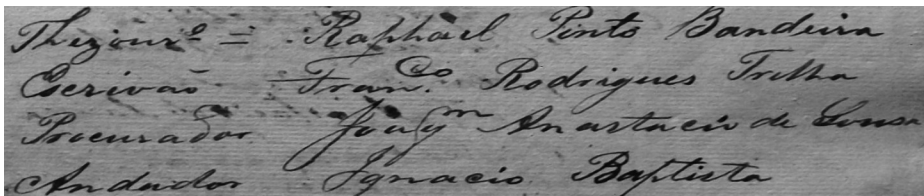 Thezour.º = Raphael Pinto Bandeira
Escrivaõ Fran.co Rodrigues Trilha
Procurador Joaq.m Anastacio de Sousa
Andador Ignacio Baptista